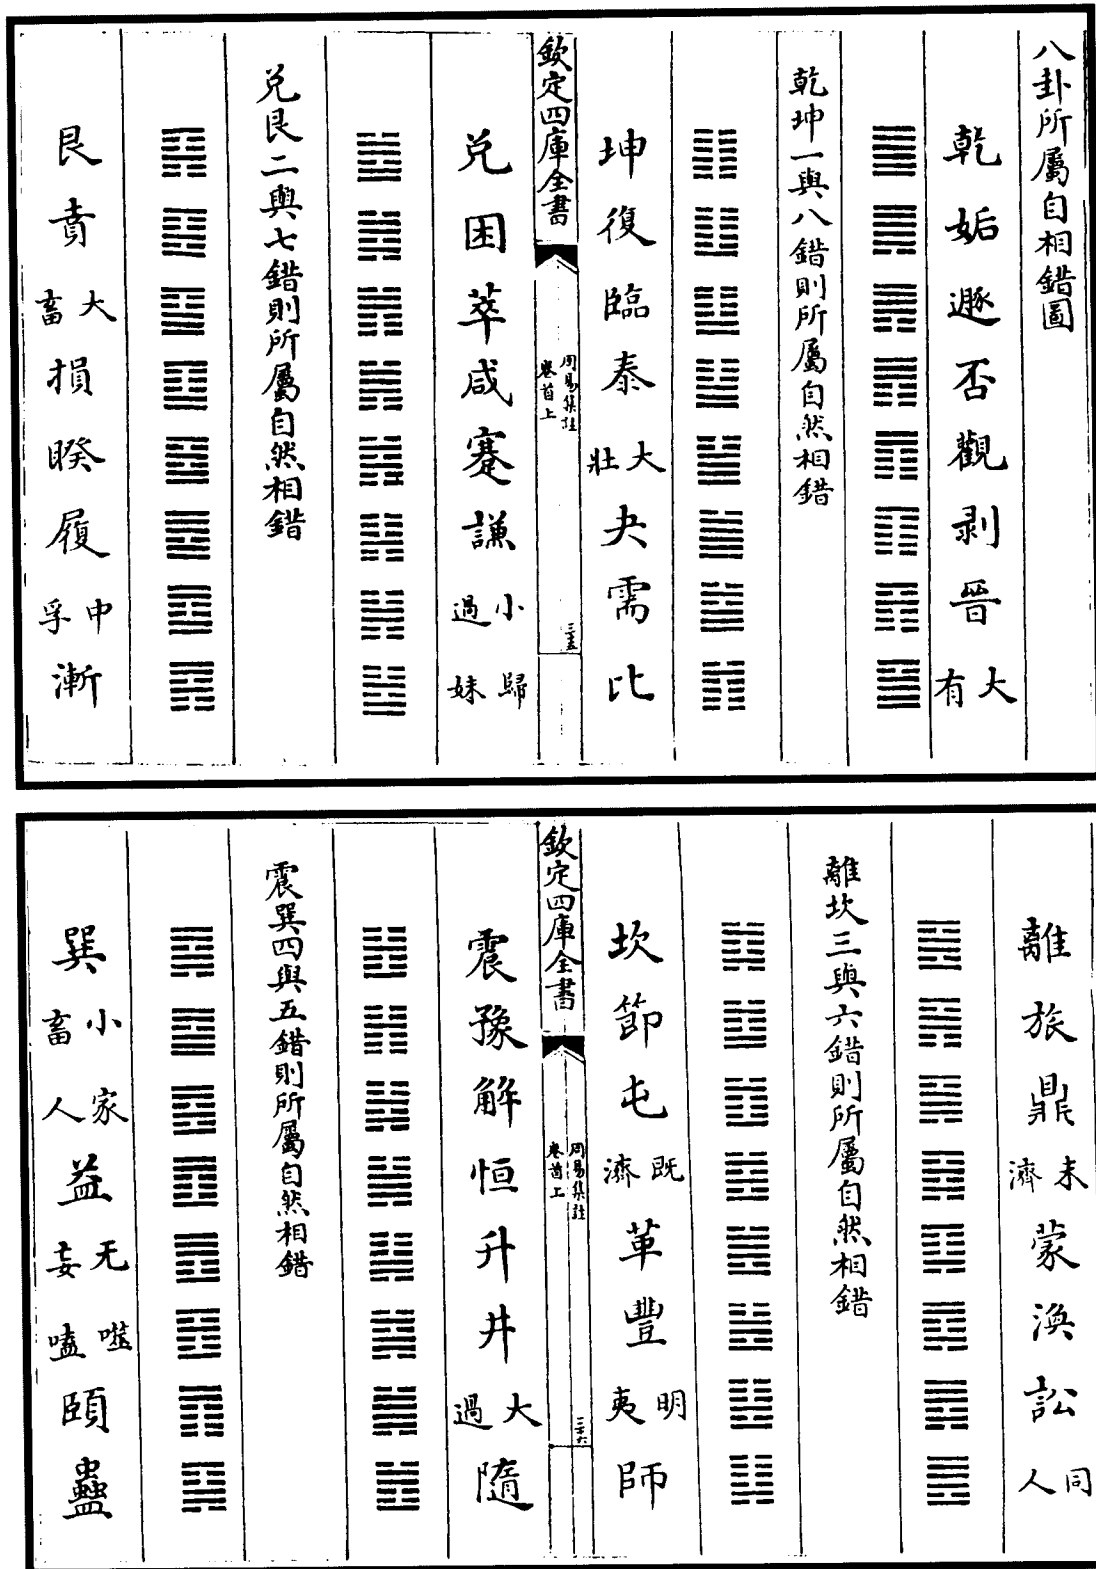 八卦所屬自相錯圖
乾 姤 遯 否 觀 剥 晉 大有
乾坤一與八錯則所屬自然相錯
坤 復 臨 泰 大壯 夬 需 比
欽定四庫全書
周易集註
卷首上
三十五
兑 困 萃 咸 蹇 謙 小過 歸妹
兑艮二與七錯則所屬自然相錯
艮 賁 大畜 損 睽 履 中孚 漸
離 旅 鼎 未濟 蒙 渙 訟 同人
離坎三與六錯則所屬自然相錯
坎 節 屯 既濟 革 豐 明夷 師
欽定四庫全書
周易集註
卷首上
三十六
震 豫 解 恒 升 井 大過 隨
震巽四與五錯則所屬自然相錯
巽 小畜 家人 益 无妄 噬嗑 頤 蠱